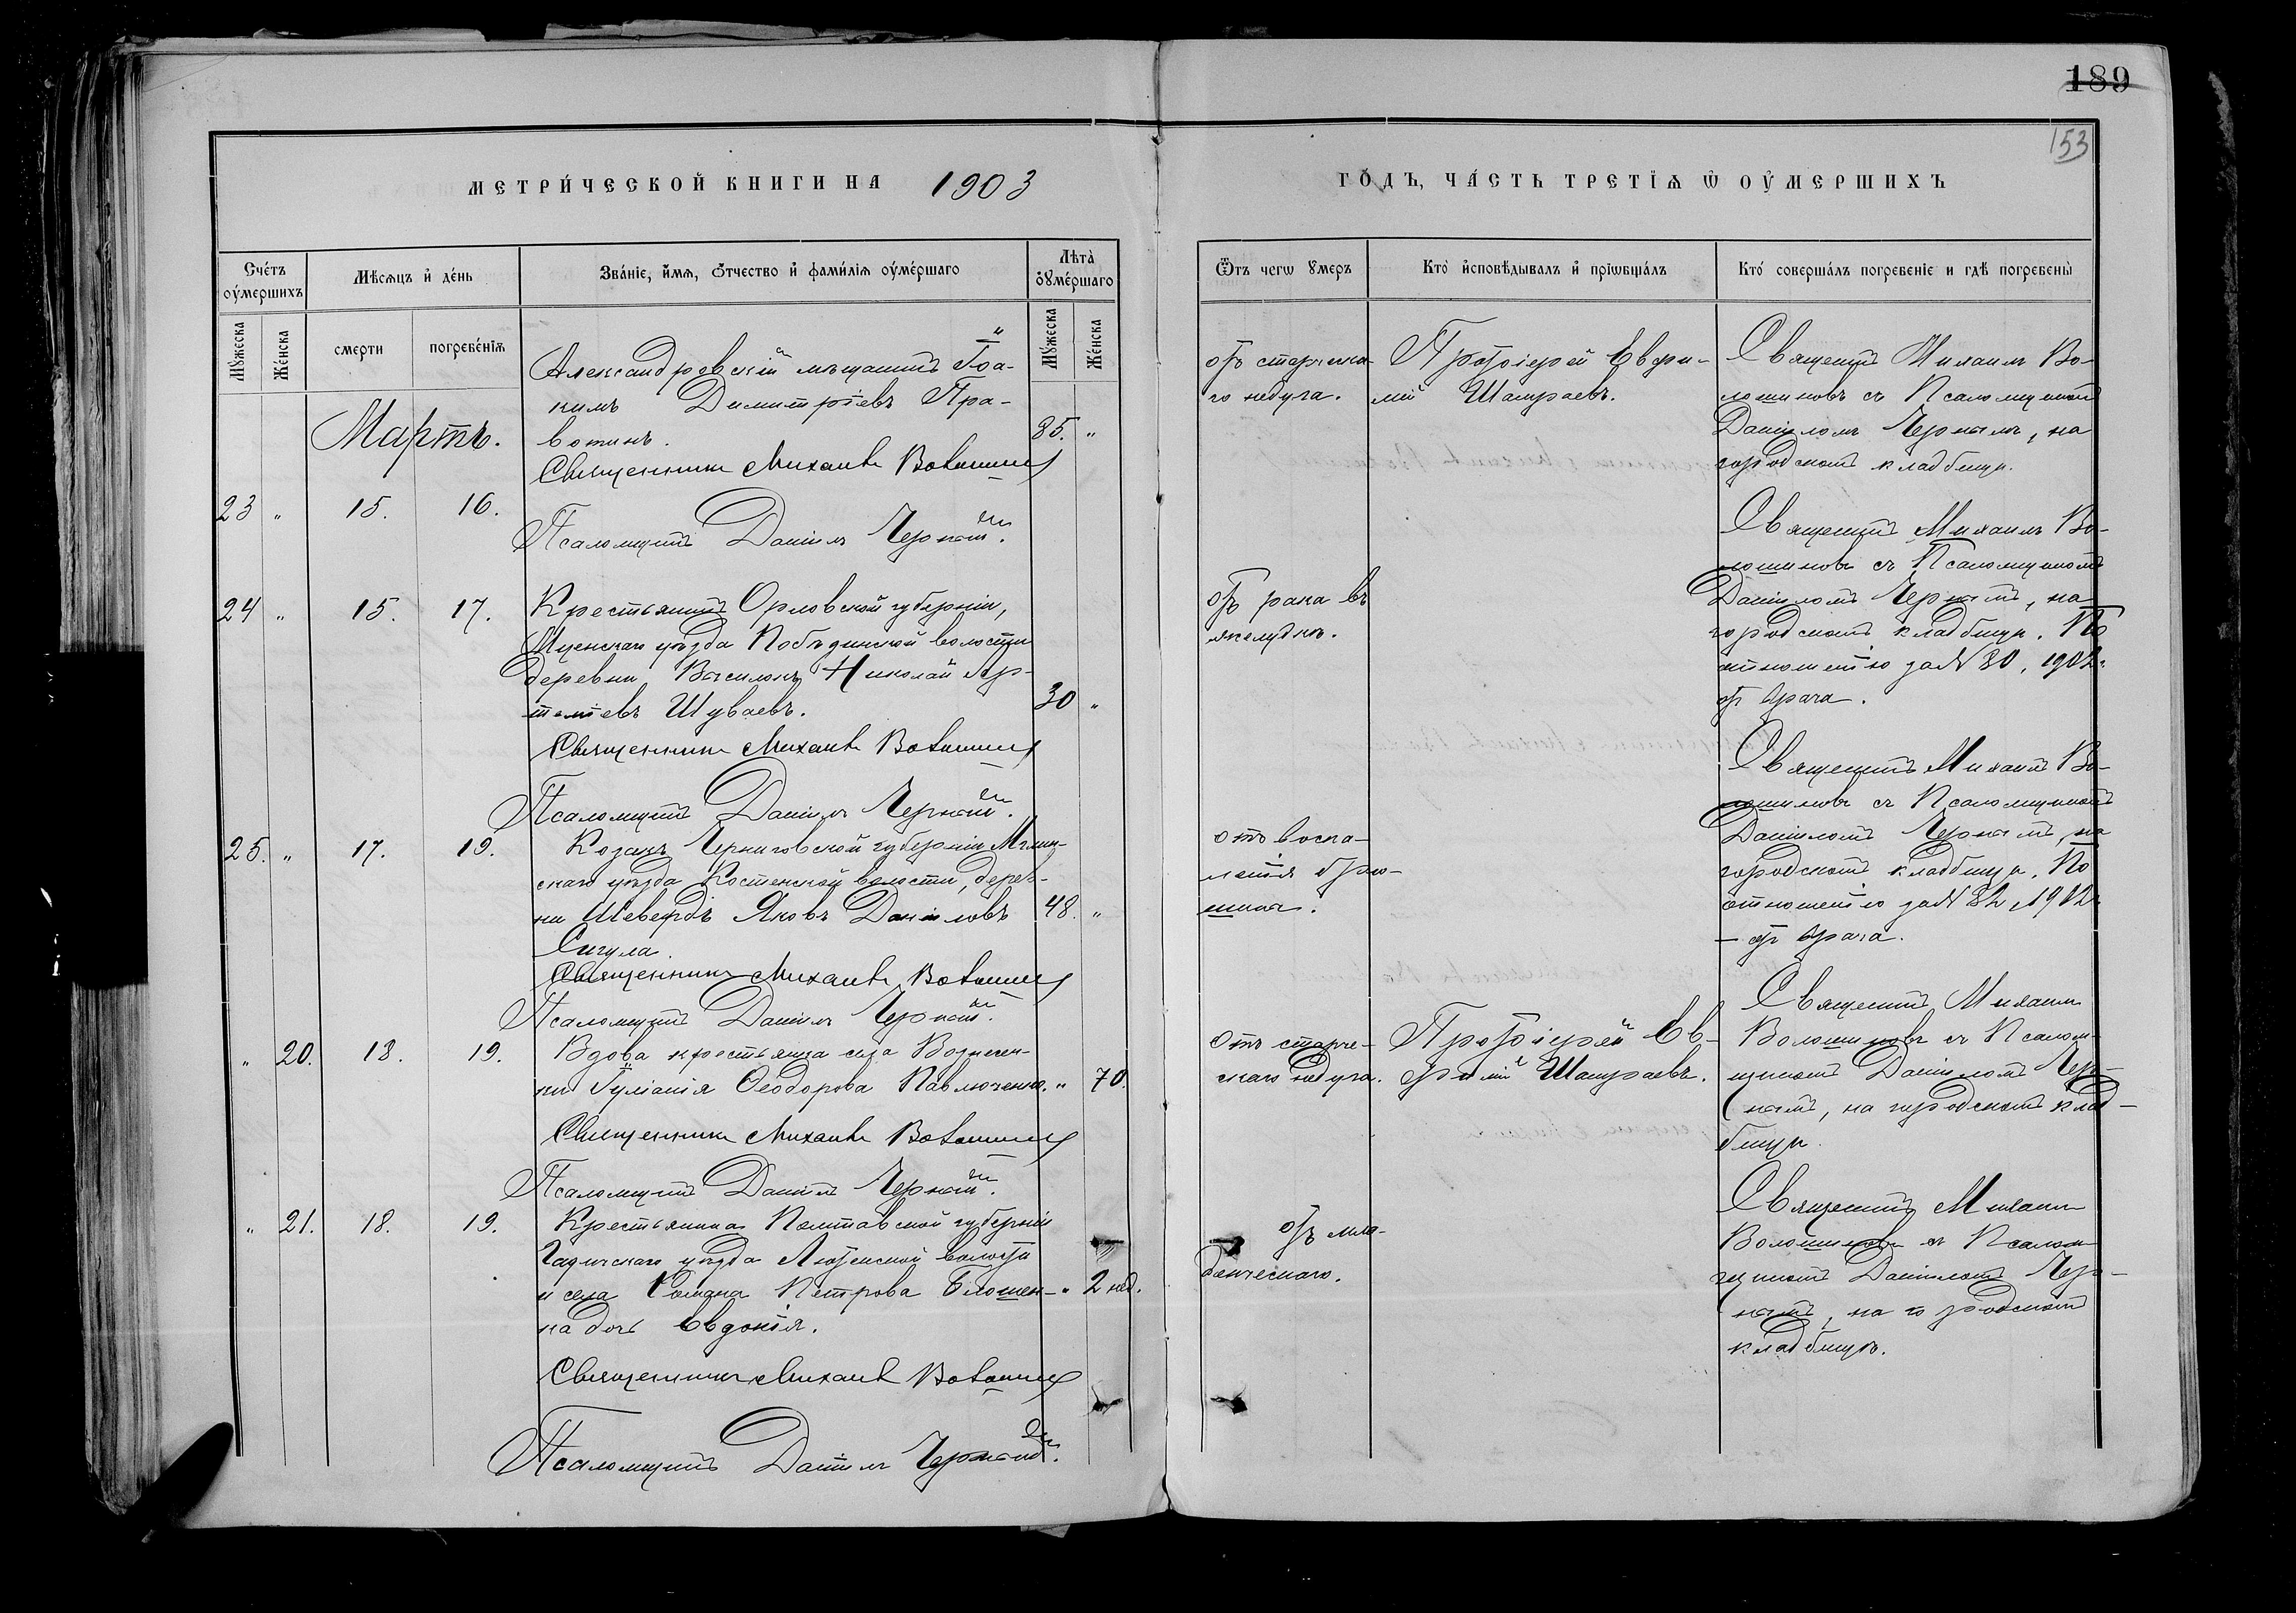 189
153
МЕТРИ́ЧЕСКОЙ КНИГИ НА 1903
ГО́ДЪ, ЧА́СТЬ ТРЕТІѦ Ѡ҆ ОУ҆МЕРШИХЪ
Сче́тъ оу҆ме́ршихъ
Мѣсѧцъ и҆ де́нь
Зва́нїе, и҆́мѧ, ѻ҆́тчество и҆ фами́лїѧ оу҆ме́ршаго
Лѣта̀ оу҆ме́ршаго
Мꙋ́жеска
Же́нска
смерти
погребе́нїѧ
Мꙋ́жеска
Же́нска
Ѿ чегѡ ꙋмеръ
Кто̀ и҆сповѣ́дывалъ и҆ прїѡбща́лъ
Кто̀ соверша́лъ погребенїе и гдѣ̀ погребены̀
Мартъ.
23 " 15. 16.
Александровскій мѣщанинъ Іоа-
кимъ Димитріевъ Пра-
вотинъ. 85. "
Священникъ Михаилъ Волошинъ
Псаломщикъ Даніилъ Черный.
отъ старческа-
го недуга.
Протоіерей Евѳи-
мій Шамраевъ.
Священникъ Михаилъ Во-
лошиновъ съ Псаломщикомъ
Даніиломъ Чернымъ, на
городскомъ кладбищѣ.
24 " 15. 17.
Крестьянинъ Орловской губерніи,
Мценскаго уѣзда Побѣдинской волости
деревни Василокъ Николай Ар-
темьевъ Шуваевъ. 30 "
Священникъ Михаилъ Волошинъ
Псаломщикъ Даніилъ Черный.
отъ рака въ
желудкѣ.
Священникъ Михаилъ Во-
лошиновъ съ Псаломщикомъ
Даніиломъ Чернымъ, на
городскомъ кладбищѣ. По
отношенію за № 80, 1902 г.
отъ врача.
25. " 17. 19.
Козакъ Черниговской губерніи Мглин-
скаго уѣзда Костенской волости, дерев-
ни Шевердъ Яковъ Даніиловъ 48. "
Сигула.
Священникъ Михаилъ Волошинъ
Псаломщикъ Даніилъ Черный.
отъ воспа-
ленія брю-
шины.
Священникъ Михаилъ Во-
лошиновъ съ Псаломщикомъ
Даніиломъ Чернымъ, на
городскомъ кладбищѣ. По
отношенію за № 82, 1902 г.
отъ врача.
" 20. 18. 19.
Вдова крестьянка села Вознесен-
ки Іуліанія Ѳеодорова Павлюченко. " 70.
Священникъ Михаилъ Волошинъ
Псаломщикъ Даніилъ Черный.
Отъ старче-
скаго недуга.
Протоіерей Ев-
ѳимій Шамраевъ.
Священникъ Михаилъ
Волошиновъ съ Псалом-
щикомъ Даніиломъ Чер-
нымъ, на городскомъ клад-
бищѣ.
" 21. 18. 19.
Крестьянина Полтавской губерніи
Гадячскаго уѣзда Лютенской волости
и села Романа Петрова Билошен- " 2 нед.
ка дочь Евдокія.
Священникъ Михаилъ Волошинъ
Псаломщикъ Даніилъ Черный.
отъ мла-
денческаго.
Священникъ Михаилъ
Волошиновъ съ Псалом-
щикомъ Даніиломъ Чер-
нымъ, на городскомъ
кладбищѣ.